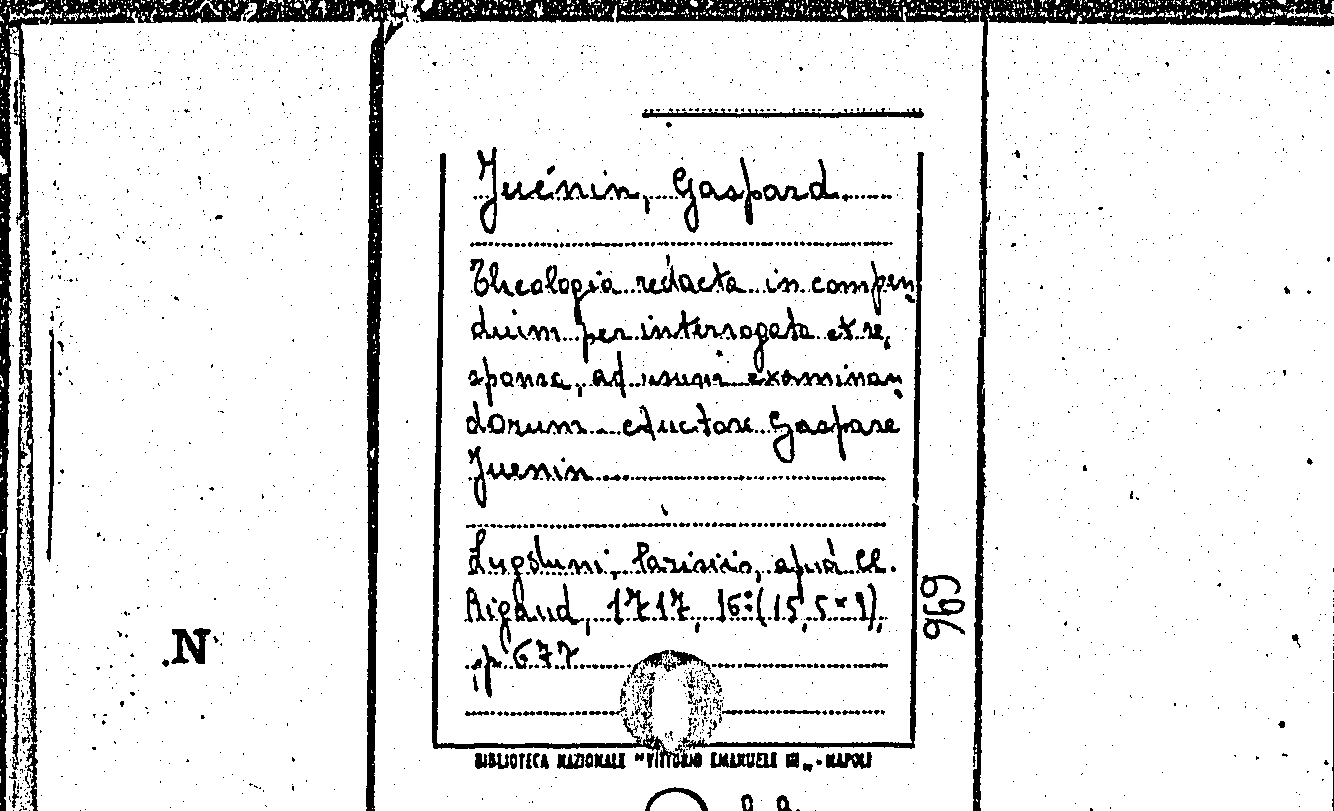 Juénin, Gaspard
Theologia redacta in compen,
duim per interrogata et re,
sponsa, ad usum examinan,
dorum auctore Gaspare
Juenin
Lugduni, Parisiis, apud Cl.
Rigaud, 1717, 16° (15,5 × 9),
pp 677
969
N
BIBLIOTECA NAZIONALE "VITTORIO EMANUELE III„ - NAPOLI